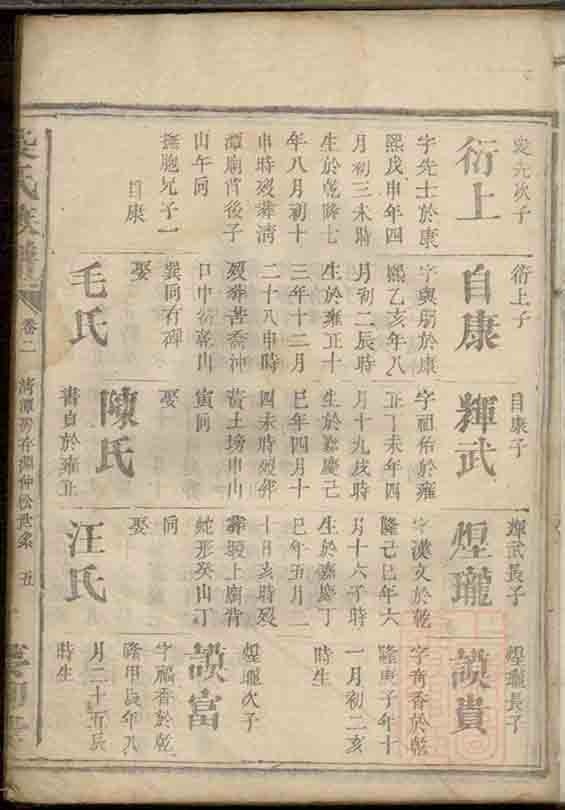 衍上
字先士於康
熙戊申年四
月初三未時
生於乾隆七
年八月初十
申時歿葬淸
潭廟背後子
山午向
撫胞兄子一
自康
衍上子
自康
字與朋於康
熙乙亥年八
月初二辰時
生於雍正十
三年十二月
二十八申時
歿葬苦喬沖
口中嶺乾山
巽向有碑
娶
毛氏
自康子
輝武
字祖佑於雍
正丁未年四
月十九戌時
生於嘉慶己
巳年四月十
四未時歿葬
黃土塝申山
寅向
娶
陳氏
書貞於雍正
輝武長子
煌瓏
字漢文於乾
隆己巳年六
月十六子時
生於嘉慶丁
巳年五月二
十日亥時歿
葬殿上廟背
蛇形癸山丁
向
娶
汪氏
煌瓏長子
謨貴
字商香於乾
隆庚子年十
一月初二亥
時生
煌瓏次子
謨富
字福香於乾
隆甲辰年八
月二十五辰
時生
氏族譜
卷二
淸潭房存淵仲松世系
五